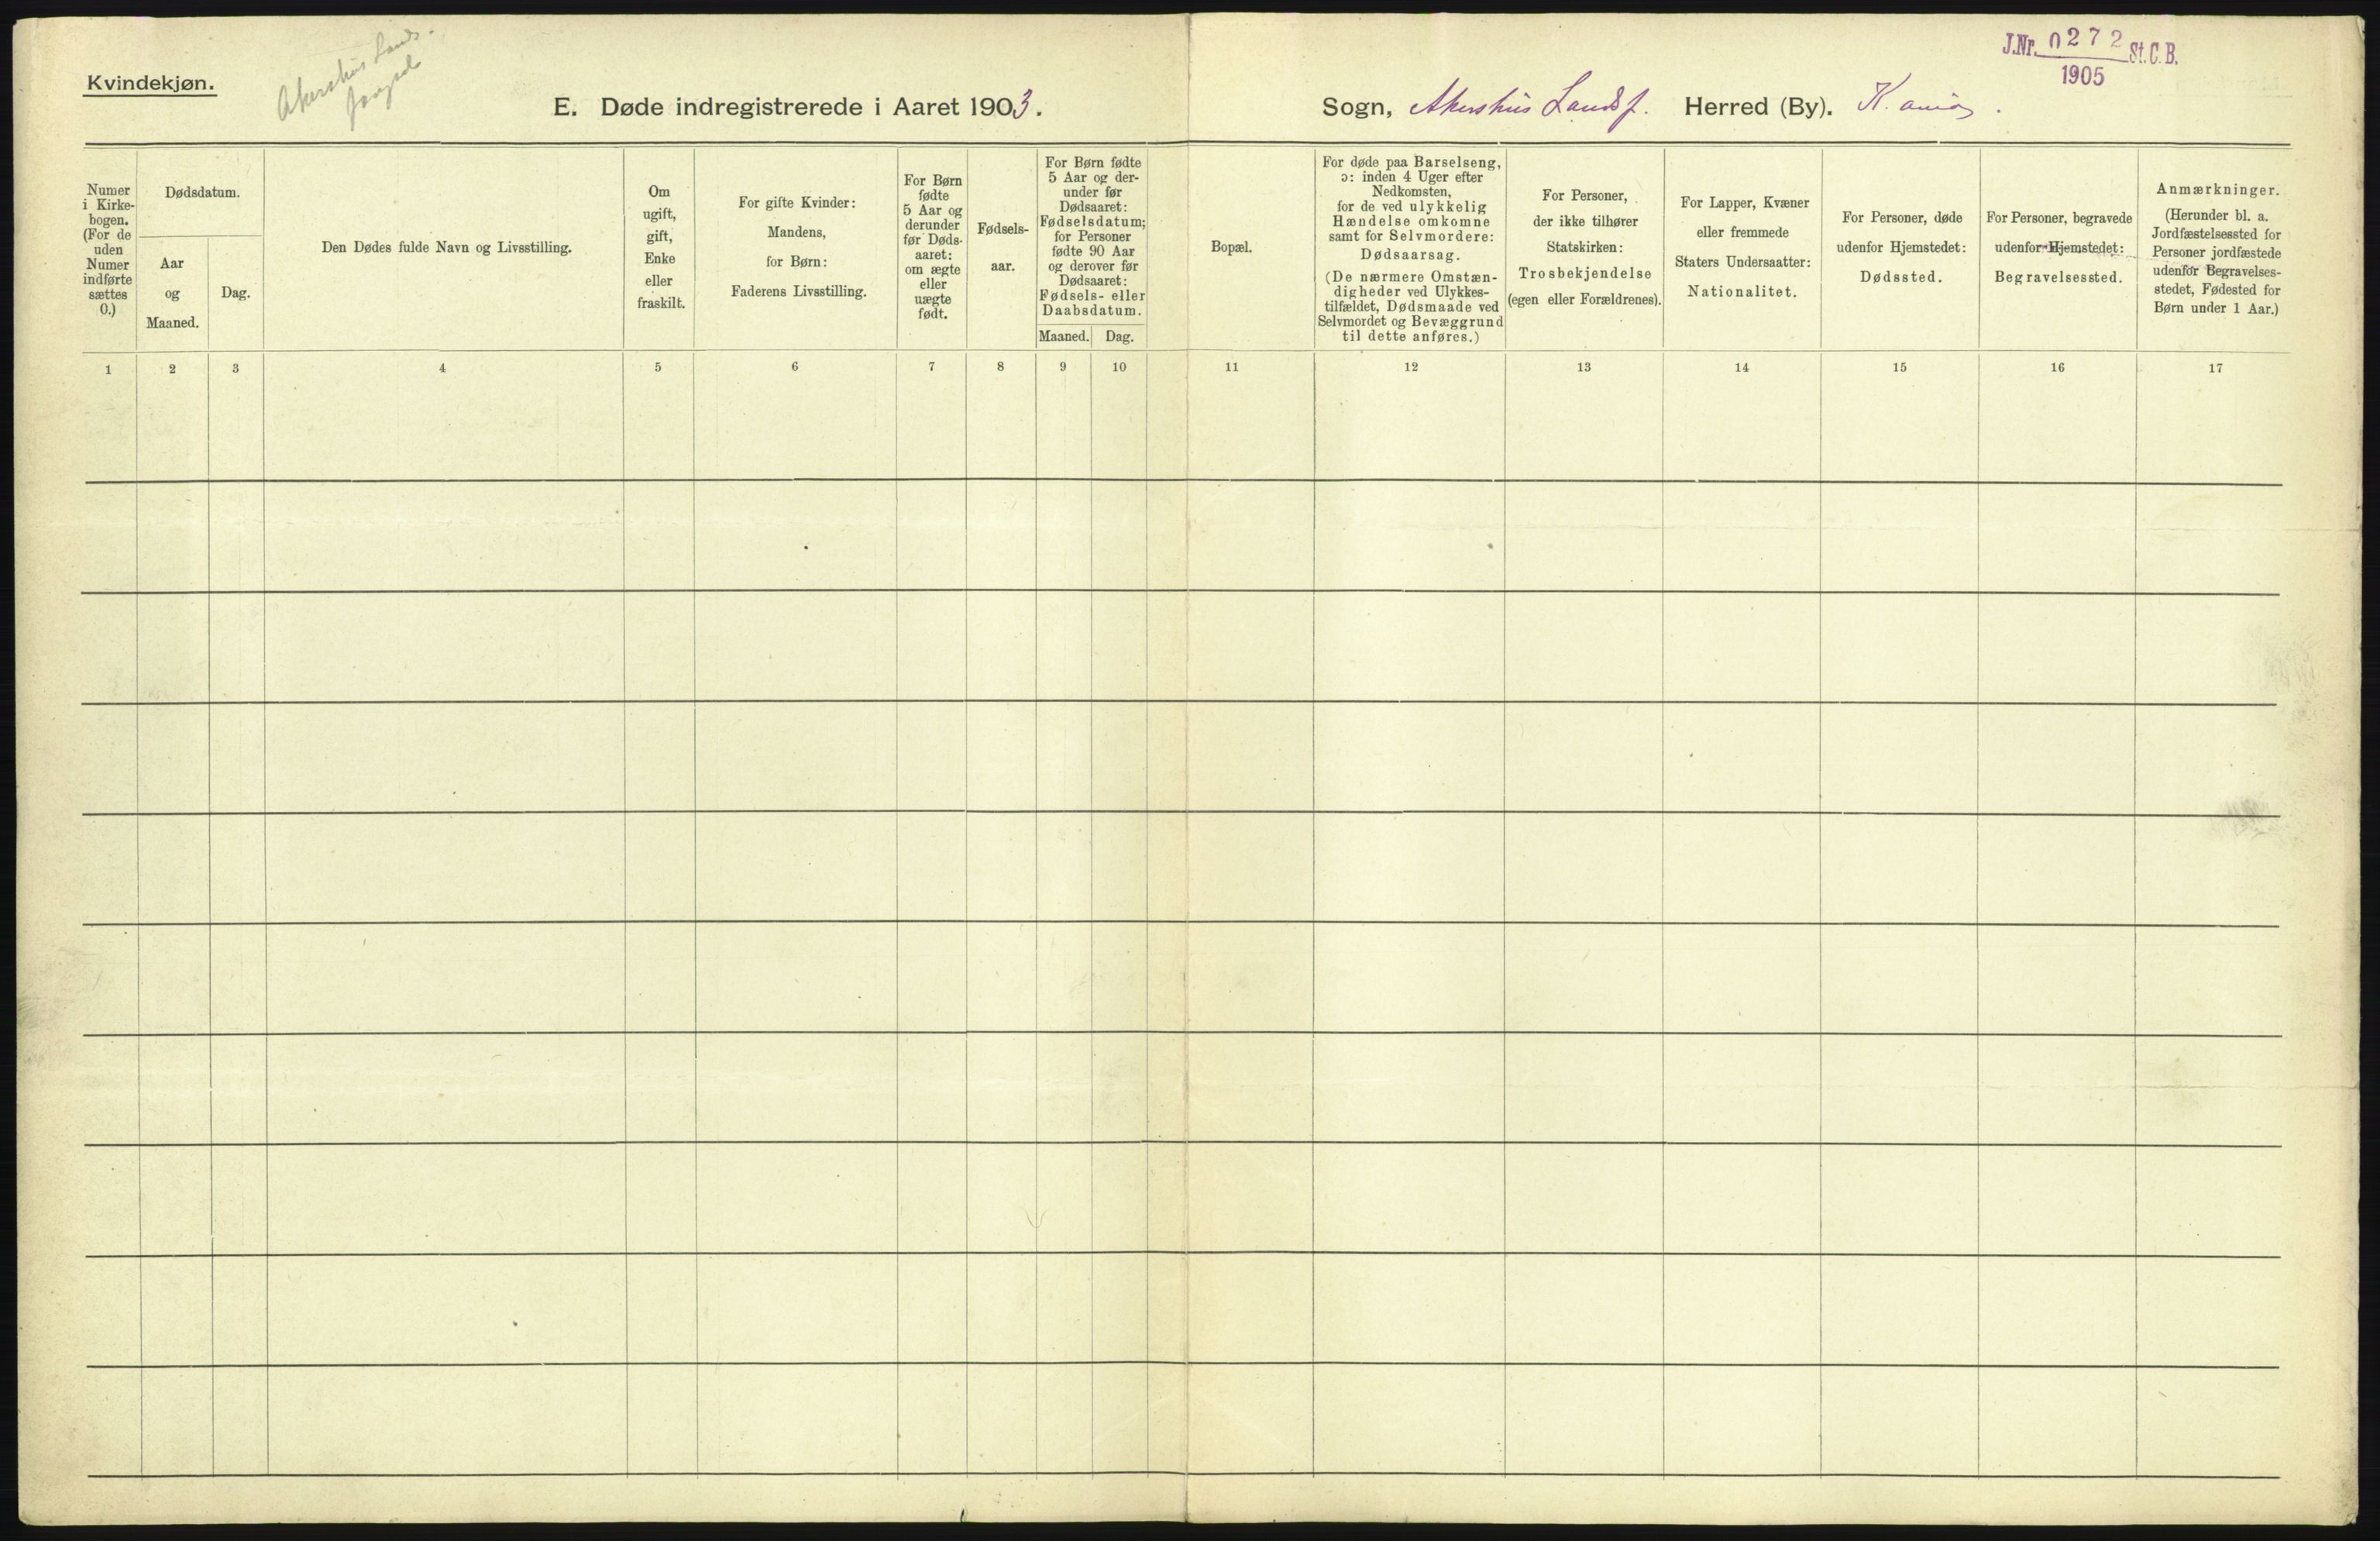 Kvindekjøn.
Akershus Lands-
E. Døde indregistrerede i Aaret 1903.
Sogn, Akershus Landsf. Herred (By). K.ania.
J.Nr. 0272 St.C.B.
1905
Numer
i Kirke-
bogen.
(For de
uden
Numer
indførte
sættes
0.)
Dødsdatum.
Aar
og
Maaned.
Dag.
Den Dødes fulde Navn og Livsstilling.
Om
ugift,
gift,
Enke
eller
fraskilt.
For gifte Kvinder:
Mandens,
for Børn:
Faderens Livsstilling.
For Børn
fødte
5 Aar og
derunder
før Døds-
aaret:
om ægte
eller
uægte
født.
Fødsels-
aar.
For Børn fødte
5 Aar og der-
under før
Dødsaaret:
Fødselsdatum;
for Personer
fødte 90 Aar
og derover før
Dødsaaret:
Fødsels- eller
Daabsdatum.
Maaned. Dag.
Bopæl.
For døde paa Barselseng,
ɔ: inden 4 Uger efter
Nedkomsten,
for de ved ulykkelig
Hændelse omkomne
samt for Selvmordere:
Dødsaarsag.
(De nærmere Omstæn-
digheder ved Ulykkes-
tilfældet, Dødsmaade ved
Selvmordet og Bevæggrund
til dette anføres.)
For Personer,
der ikke tilhører
Statskirken:
Trosbekjendelse
(egen eller Forældrenes).
For Lapper, Kvæner
eller fremmede
Staters Undersaatter:
Nationalitet.
For Personer, døde
udenfor Hjemstedet:
Dødssted.
For Personer, begravede
udenfor Hjemstedet:
Begravelsessted.
Anmærkninger.
(Herunder bl. a.
Jordfæstelsessted for
Personer jordfæstede
udenfor Begravelses-
stedet, Fødested for
Børn under 1 Aar.)
1 2 3 4 5 6 7 8 9 10 11 12 13 14 15 16 17